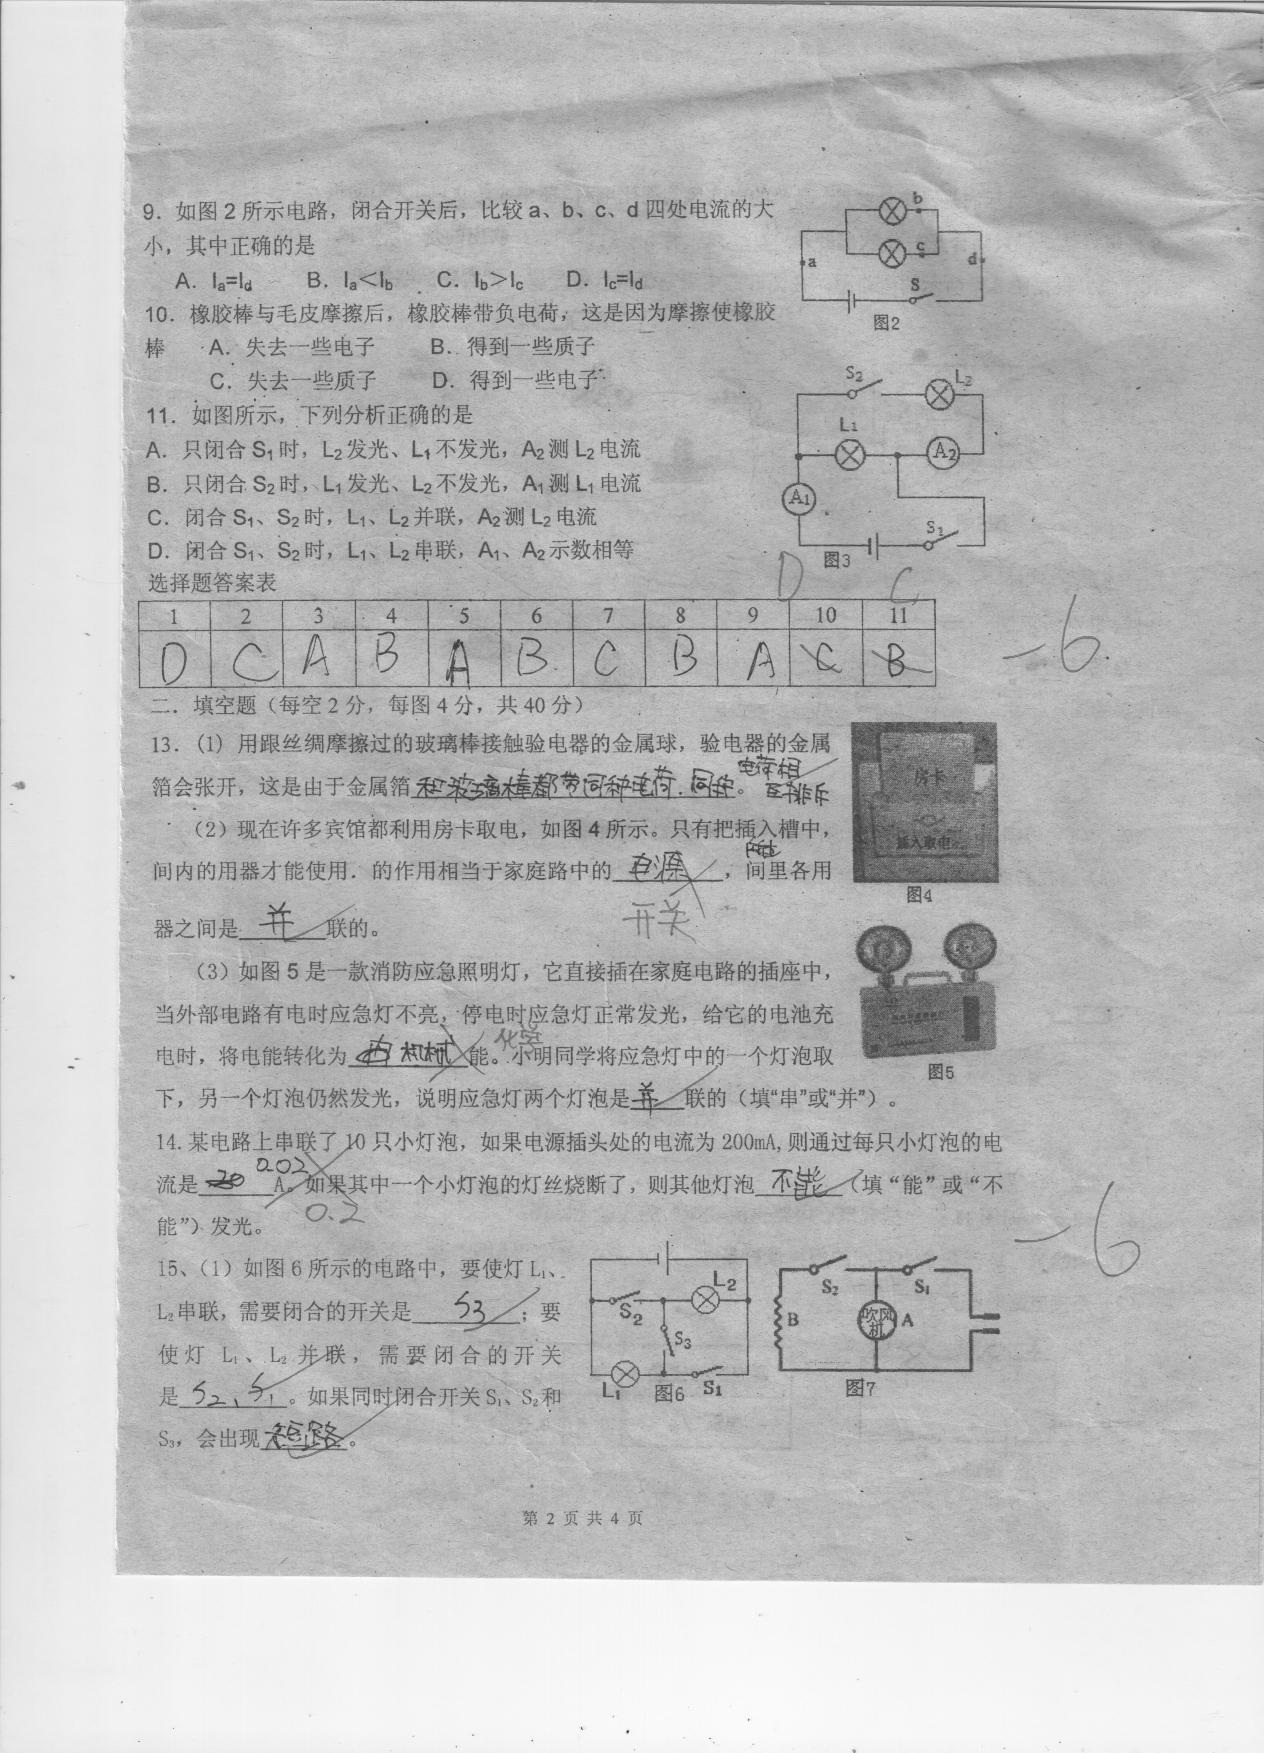 9．如图2所示电路，闭合开关后，比较a、b、c、d四处电流的大
小，其中正确的是
A．Ia=Id　B．Ia＜Ib　C．Ib＞Ic　D．Ic=Id
b
c
a
d
S
图2
10．橡胶棒与毛皮摩擦后，橡胶棒带负电荷，这是因为摩擦使橡胶
棒　A．失去一些电子　B．得到一些质子
C．失去一些质子　D．得到一些电子
11．如图所示，下列分析正确的是
A．只闭合S1时，L2发光、L1不发光，A2测L2电流
B．只闭合S2时，L1发光、L2不发光，A1测L1电流
C．闭合S1、S2时，L1、L2并联，A2测L2电流
D．闭合S1、S2时，L1、L2串联，A1、A2示数相等
S2
L2
L1
A2
A1
S1
图3
选择题答案表
D C
1 2 3 4 5 6 7 8 9 10 11
D C A B A B C B A C B
-6
二．填空题（每空2分，每图4分，共40分）
13．(1) 用跟丝绸摩擦过的玻璃棒接触验电器的金属球，验电器的金属
电荷相
箔会张开，这是由于金属箔和玻璃棒都带同种电荷.同种。互排斥
（2）现在许多宾馆都利用房卡取电，如图4所示。只有把插入槽中，
间内的用器才能使用．的作用相当于家庭路中的 电源 ，间里各用
开关
器之间是 并 联的。
房卡
插入取电
图4
（3）如图5是一款消防应急照明灯，它直接插在家庭电路的插座中，
当外部电路有电时应急灯不亮，停电时应急灯正常发光，给它的电池充
化学
电时，将电能转化为 内 机械 能。小明同学将应急灯中的一个灯泡取
下，另一个灯泡仍然发光，说明应急灯两个灯泡是 并 联的（填“串”或“并”）。
图5
14.某电路上串联了10只小灯泡，如果电源插头处的电流为200mA,则通过每只小灯泡的电
0.02
流是 20 A。如果其中一个小灯泡的灯丝烧断了，则其他灯泡 不能 （填“能”或“不
0.2
能”）发光。
-6
15、（1）如图6所示的电路中，要使灯L1、
L2串联，需要闭合的开关是 S3 ；要
使灯 L1、L2 并联，需要闭合的开关
是 S2、S1 。如果同时闭合开关S1、S2和
S3，会出现 短路 。
L2
S2
S3
L1
S1
图6
S2
S1
B
吹风机
A
图7
第 2 页 共 4 页